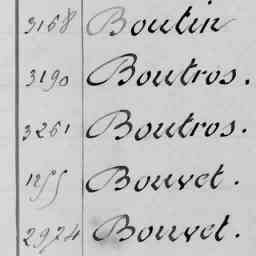 3168 Boutin
3190 Boutros.
3261 Boutros.
1255 Bouvet.
2924 Bouvet.